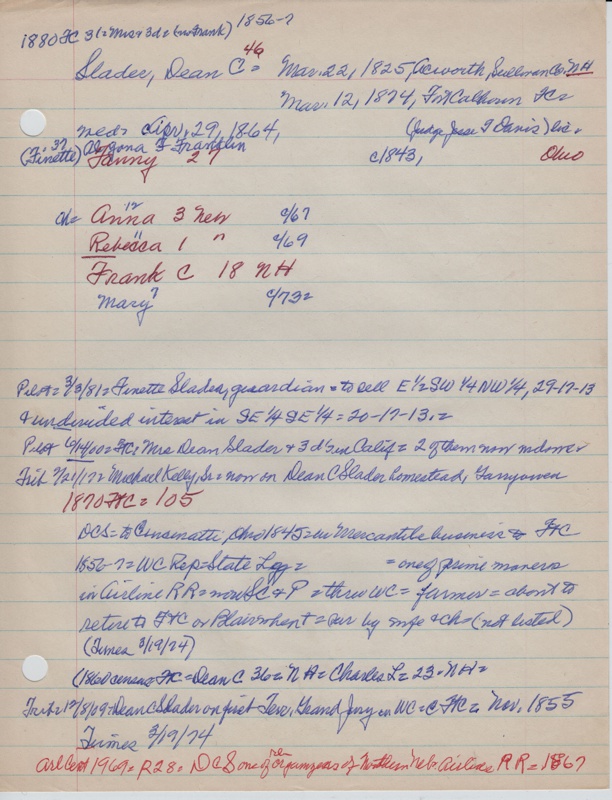 1880 FC 31 = Mrs & 3 d = (no Frank) 1856-7
Slader, Dean C = 46 Mar. 22, 1825, Acworth, Sullivan Co. NH
Mar. 12, 1874, Ft Calhoun FC =
med = Apr, 29, 1864, (Judge Jesse T Davis) lic.
(Finette) 37 Franklin
Fanny 27 c/1843, Ohio
ch = Anna 12 3 Neb c/67
Rebecca 11 1 " c/69
Frank C 18 NH
Mary 7 c/73 =
Pilot = 3/3/81 = Finette Slader, guardian = to sell E 1/2 SW 1/4 NW 1/4, 29-17-13
& undivided interest in SE 1/4 SE 1/4 = 20-17-13. =
Pilot 6/14/00 = FC: Mrs Dean Slader & 3 d's in Calif = 2 of them now widows
Trib 7/21/12 = Michael Kelly, Sr = now on Dean C Slader homestead, Garryowen
1870 FtC = 105
DCS = to Cincinatti, Ohio 1845 = in Mercantile business to FtC
1856-7 = WC Rep = State Leg = = one of prime movers
in Airline RR = now SC & P = thru WC = farmer = about to
retire to FtC or Blair when = sur by wife & ch = (not listed)
(Times 3/19/74)
(1860 census FC = Dean C 36 = NH = Charles L = 23 = NH =
Trib = 12/8/69 = Dean C Slader on first Terr, Grand Jury in WC = @ FtC = Nov, 1855
Times 3/19/74
Art Cent 1969 = P28 = DCS one of the organizers of Northern Neb. Airline RR = 1867